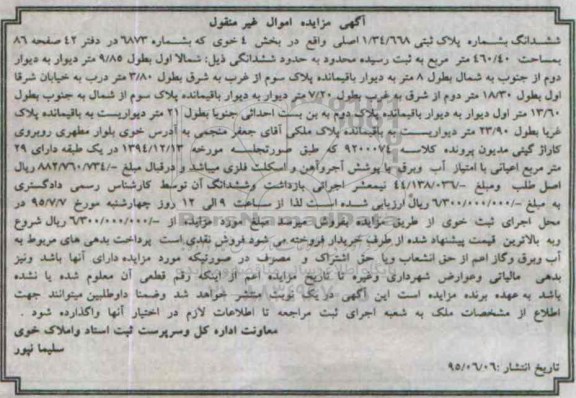 آگهی مزایده اموال غیر منقول
ششدانگ بشماره پلاک ثبتی ۱/۳۴/۶۶۸ اصلی واقع در بخش ۴ خوی که بشماره ۶۸۷۳ در دفتر ۴۲ صفحه ۸۶
بمساحت ۴۶۰/۴۰ متر مربع به ثبت رسیده محدود به حدود ششدانگی ذیل: شمالا اول بطول ۹/۸۵ متر دیوار به دیوار
دوم از جنوب به شمال بطول ۸ متر به دیوار باقیمانده پلاک سوم از غرب به شرق بطول ۳/۸۰ متر درب به خیابان شرقا
اول بطول ۱۸/۳۰ متر دوم از شرق به غرب بطول ۷/۲۰ متر دیوار به دیوار باقیمانده پلاک سوم از شمال به جنوب بطول
۱۳/۶۰ متر اول دیوار به دیوار باقیمانده پلاک دوم به بن بست احداثی جنوبا بطول ۲۱ متر دیواریست به باقیمانده پلاک
غربا بطول ۲۳/۹۰ متر دیواریست به باقیمانده پلاک ملکی آقای جعفر منجمی به آدرس خوی بلوار مطهری روبروی
کاراژ گیتی مدیون پرونده کلاسه ۹۲۰۰۰۷۴ که طبق صورتجلسه مورخه ۱۳۹۴/۱۲/۱۳ در یک طبقه دارای ۲۹
متر مربع اعیانی با امتیاز آب وبرق با پوشش آجروآهن و اسکلت فلزی میباشد و درقبال مبلغ ۸۸۲/۷۶۰/۷۳۴/- ریال
اصل طلب ومبلغ ۴۴/۱۳۸/۰۳۶/- نیمعشر اجرائی بازداشت وششدانگ آن توسط کارشناس رسمی دادگستری
به مبلغ ۶/۳۰۰/۰۰۰/۰۰۰/- ریال ارزیابی شده است لذا از ساعت ۹ الی ۱۲ روز چهارشنبه مورخ ۹۵/۷/۷ در
محل اجرای ثبت خوی از طریق مزایده بفروش میرسد مبلغ مورد مزایده از ۶/۳۰۰/۰۰۰/۰۰۰/- ریال شروع
وبه بالاترین قیمت پیشنهاد شده از طرف خریدار فروخته می شود فروش نقدی است پرداخت بدهی های مربوط به
آب وبرق وگاز اعم از حق انشعاب ویا حق اشتراک و مصرف در صورتیکه مورد مزایده دارای آنها باشد ونیز
بدهی مالیاتی وعوارض شهرداری وغیره تا تاریخ مزایده اعم از اینکه رقم قطعی آن معلوم شده یا نشده
باشد به عهده برنده مزایده است این آگهی در یک نوبت منتشر خواهد شد وضمنا داوطلبین میتوانند جهت
اطلاع از مشخصات ملک به شعبه اجرای ثبت مراجعه تا اطلاعات لازم در اختیار آنها واگذارده شود .
معاونت اداره کل وسرپرست ثبت اسناد واملاک خوی
سلیما نپور
تاریخ انتشار :۹۵/۰۶/۰۶